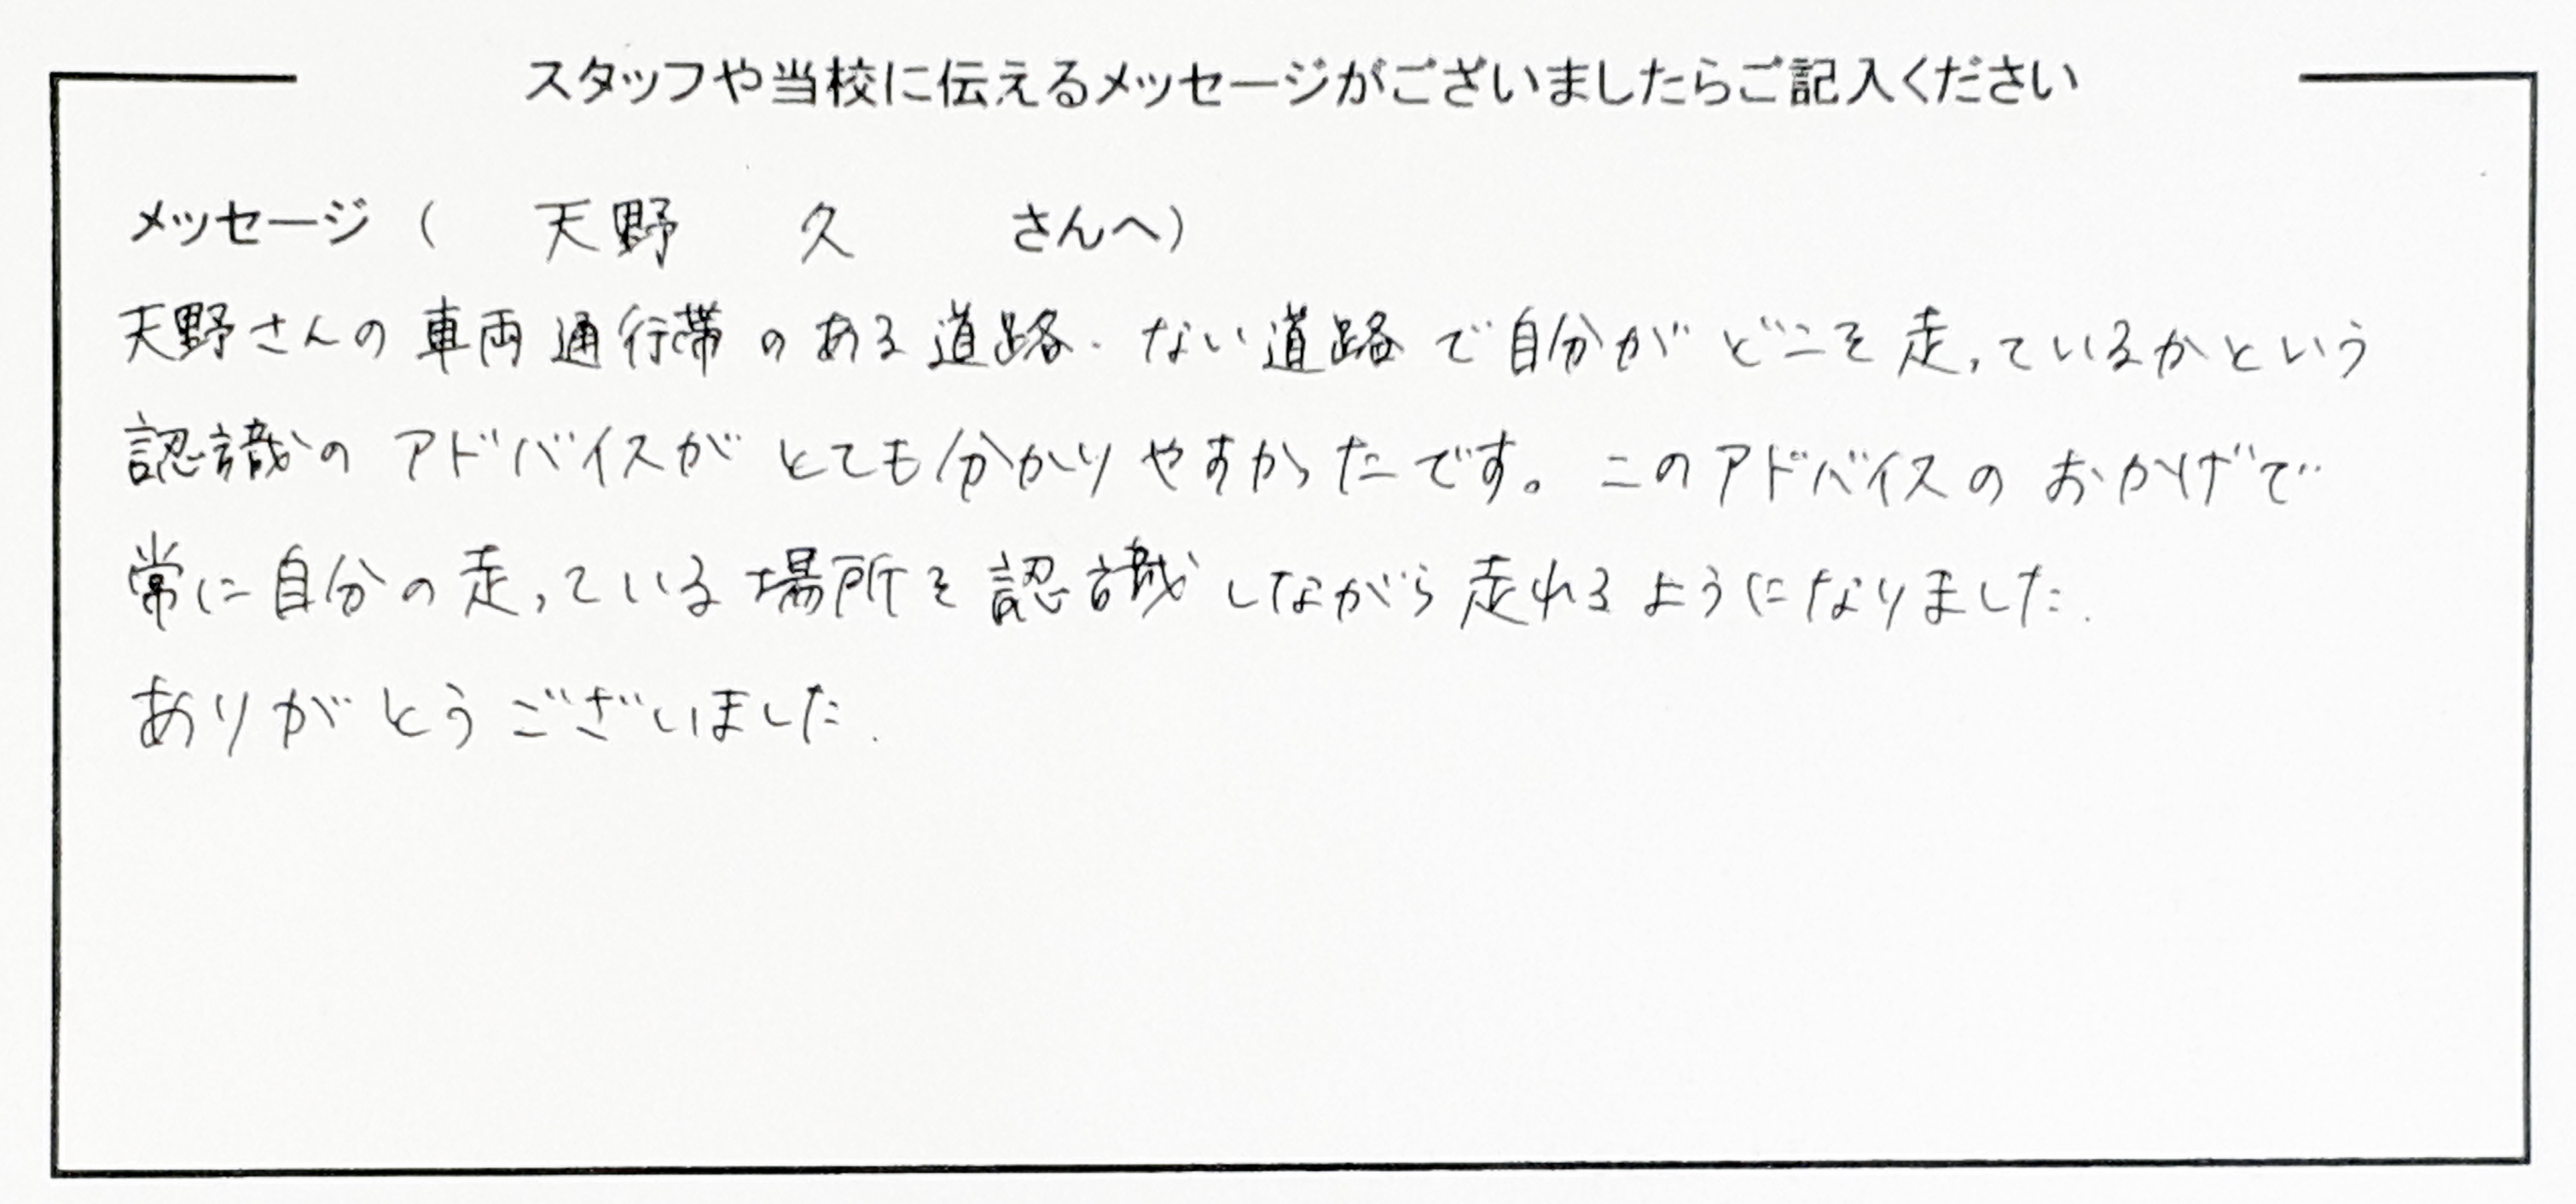 スタッフや当校に伝えるメッセージがございましたらご記入ください
メッセージ（ 天野 久 さんへ）
天野さんの車両通行帯のある道路・ない道路で自分がどこを走っているかという
認識のアドバイスがとても分かりやすかったです。このアドバイスのおかげで
常に自分の走っている場所を認識しながら走れるようになりました.
ありがとうございました.